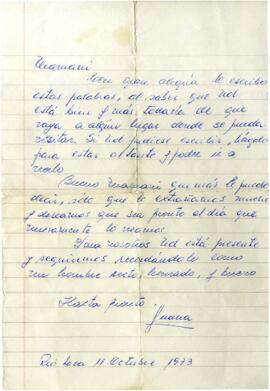 Mamani
Con gran alegría le escribo
estas palabras, al saber que Ud
está bien y más todavía de que
vaya a algún lugar donde se pueda
visitar. Si Ud pudiese escribir, hágalo
para estar al tanto y poder ir a
verlo
Bueno Mamani que más le puedo
decir, sólo que le extrañamos mucho
y deseamos que sea pronto el día que
nuevamente lo veamos.
Para nosotros Ud está presente
y seguiremos recordándole como
un hombre recto, honrado, y bueno
Hasta pronto
Juana
11 Octubre 1973